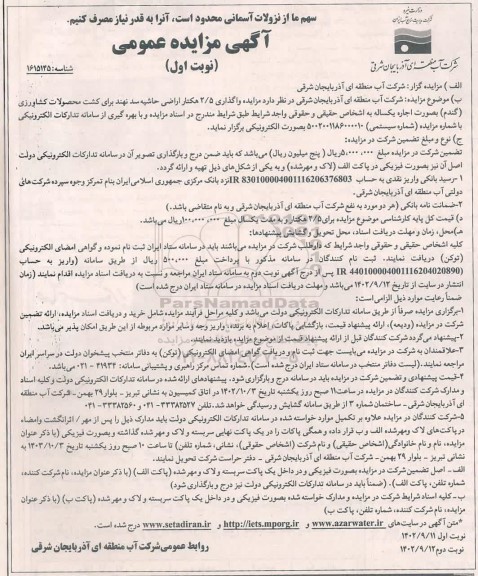 سهم ما از نزولات آسمانی محدود است، آنرا به قدر نیاز مصرف کنیم.
وزارت نیرو
آگهی مزایده عمومی
شرکت آب منطقه ای آذربایجان شرقی
(نوبت اول)
شناسه: ۱۶۱۵۱۴۵
الف) مزایده گزار: شرکت آب منطقه ای آذربایجان شرقی
ب) موضوع مزایده: شرکت آب منطقه ای آذربایجان شرقی در نظر دارد مزایده واگذاری ۲/۵ هکتار اراضی حاشیه سد نهند برای کشت محصولات کشاورزی
(گندم) بصورت اجاره یکساله به اشخاص حقیقی و حقوقی واجد شرایط طبق شرایط مندرج در اسناد مزایده و با بهره گیری از سامانه تدارکات الکترونیکی
با شماره مزایده (شماره سیستمی) ۵۰۰۲۰۰۱۱۸۶۰۰۰۰۱۰ بصورت الکترونیکی برگزار نماید.
ج) نوع و مبلغ تضمین شرکت در مزایده:
تضمین شرکت در مزایده مبلغ ۵,۰۰۰,۰۰۰ ریال (پنج میلیون ریال) می‌باشد که باید ضمن درج و بارگذاری تصویر آن در سامانه تدارکات الکترونیکی دولت
اصل آن نیز بصورت فیزیکی در پاکت الف (لاک و مهرشده) و به یکی از شکل‌های ذیل تهیه و ارائه گردد.
۱-رسید بانکی واریز نقدی به حساب IR 830100004001116206376803 نزد بانک مرکزی جمهوری اسلامی ایران بنام تمرکز وجوه سپرده شرکت‌های
دولتی آب منطقه ای آذربایجان شرقی.
۲-ضمانت نامه بانکی (هر دو مورد به نفع شرکت آب منطقه ای آذربایجان شرقی و به نام متقاضی باشد.)
د) قیمت کل پایه کارشناسی موضوع مزایده برای ۲/۵ هکتار و به مدت یکسال مبلغ ۱۰۰,۰۰۰,۰۰۰ ریال می‌باشد.
ه) محل، زمان و مهلت دریافت اسناد، محل تحویل و گشایش پیشنهادها:
کلیه اشخاص حقیقی و حقوقی واجد شرایط که داوطلب شرکت در مزایده می‌باشند باید در سامانه ستاد ایران ثبت نام نموده و گواهی امضای الکترونیکی
(توکن) دریافت نمایند. ثبت نام کنندگان در سامانه مذکور با پرداخت مبلغ ۵۰۰,۰۰۰ ریال از طریق سامانه (واریز به حساب
IR 440100004001116204020890) پس از درج آگهی نوبت دوم به سامانه ستاد ایران مراجعه و نسبت به دریافت اسناد مزایده اقدام نمایند (زمان
انتشار در سایت از تاریخ ۱۴۰۲/۹/۱۲ می‌باشد و مهلت دریافت اسناد مزایده در سامانه ستاد ایران درج شده است)
ضمنا رعایت موارد ذیل الزامی است:
۱-برگزاری مزایده صرفاً از طریق سامانه تدارکات الکترونیکی دولت می‌باشد و کلیه مراحل فرآیند مزایده شامل خرید و دریافت اسناد مزایده، ارائه تضمین
شرکت در مزایده (ودیعه)، ارائه پیشنهاد قیمت، بازگشایی پاکات، اعلام به برنده، واریز وجه و سایر موارد مربوطه از این طریق امکان پذیر می‌باشد.
۲-پیشنهاد می‌گردد شرکت کنندگان قبل از ارائه پیشنهاد قیمت از موضوع مزایده بازدید نمایند.
۳-علاقمندان به شرکت در مزایده می‌بایست جهت ثبت نام و دریافت گواهی امضای الکترونیکی (توکن) به دفاتر منتخب پیشخوان دولت در سراسر ایران
مراجعه نمایند. (لیست دفاتر منتخب در سامانه ستاد ایران درج شده است). شماره تماس مرکز راهبری و پشتیبانی سامانه: ۴۱۹۳۴ - ۰۲۱ می‌باشد.
۴-قیمت پیشنهادی و تضمین شرکت در مزایده باید در سامانه درج و بارگذاری شود. پیشنهادهای ارائه شده در سامانه تدارکات الکترونیکی دولت و کلیه اسناد
و مدارک شرکت کنندگان در مزایده در ساعت ۱۱ صبح روز یکشنبه تاریخ ۱۴۰۲/۱۰/۳ در اتاق کمیسیون به نشانی تبریز - بلوار ۲۹ بهمن - شرکت آب منطقه
ای آذربایجان شرقی - ساختمان شماره ۳ از طریق سامانه گشایش و رسیدگی خواهد شد. تلفن ۳۳۳۸۲۵۲۷ - ۰۴۱ و ۳۳۳۸۲۵۶۰ - ۰۴۱
۵-شرکت کنندگان در مزایده علاوه بر تکمیل موارد خواسته شده در سامانه تدارکات الکترونیکی دولت باید مدارک ذیل را پس از مهر / اثرانگشت و امضاء
در پاکت‌های لاک و مهرشده الف و ب قرار داده و همگی پاکات را در یک پاکت نهایی سربسته و لاک و مهر شده گذاشته و بصورت فیزیکی (با ذکر عنوان
مزایده، نام و نام خانوادگی(اشخاص حقیقی) و نام شرکت (اشخاص حقوقی)، نشانی، شماره تلفن) تا ساعت ۱۰ صبح روز یکشنبه تاریخ ۱۴۰۲/۱۰/۳ به
نشانی تبریز - بلوار ۲۹ بهمن - شرکت آب منطقه ای آذربایجان شرقی - دفتر حراست شرکت تحویل نمایند.
الف - اصل تضمین شرکت در مزایده بصورت فیزیکی و در داخل یک پاکت سربسته و لاک و مهرشده (پاکت الف) (با ذکر عنوان مزایده، نام شرکت کننده،
شماره تلفن، پاکت الف). (ضمناً باید در سامانه تدارکات الکترونیکی دولت نیز درج و بارگذاری شود)
ب- کلیه اسناد شرایط شرکت در مزایده و مدارک خواسته شده بصورت فیزیکی و در داخل یک پاکت سربسته و لاک و مهر شده (پاکت ب) (با ذکر عنوان
مزایده، نام شرکت کننده، شماره تلفن، پاکت ب)
*متن آگهی در سایت‌های www.azarwater.ir و http://iets.mporg.ir و www.setadiran.ir درج شده است.
نوبت اول ۱۴۰۲/۹/۱۱
نوبت دوم ۱۴۰۲/۹/۱۲
روابط عمومی شرکت آب منطقه ای آذربایجان شرقی
ParsNamadData